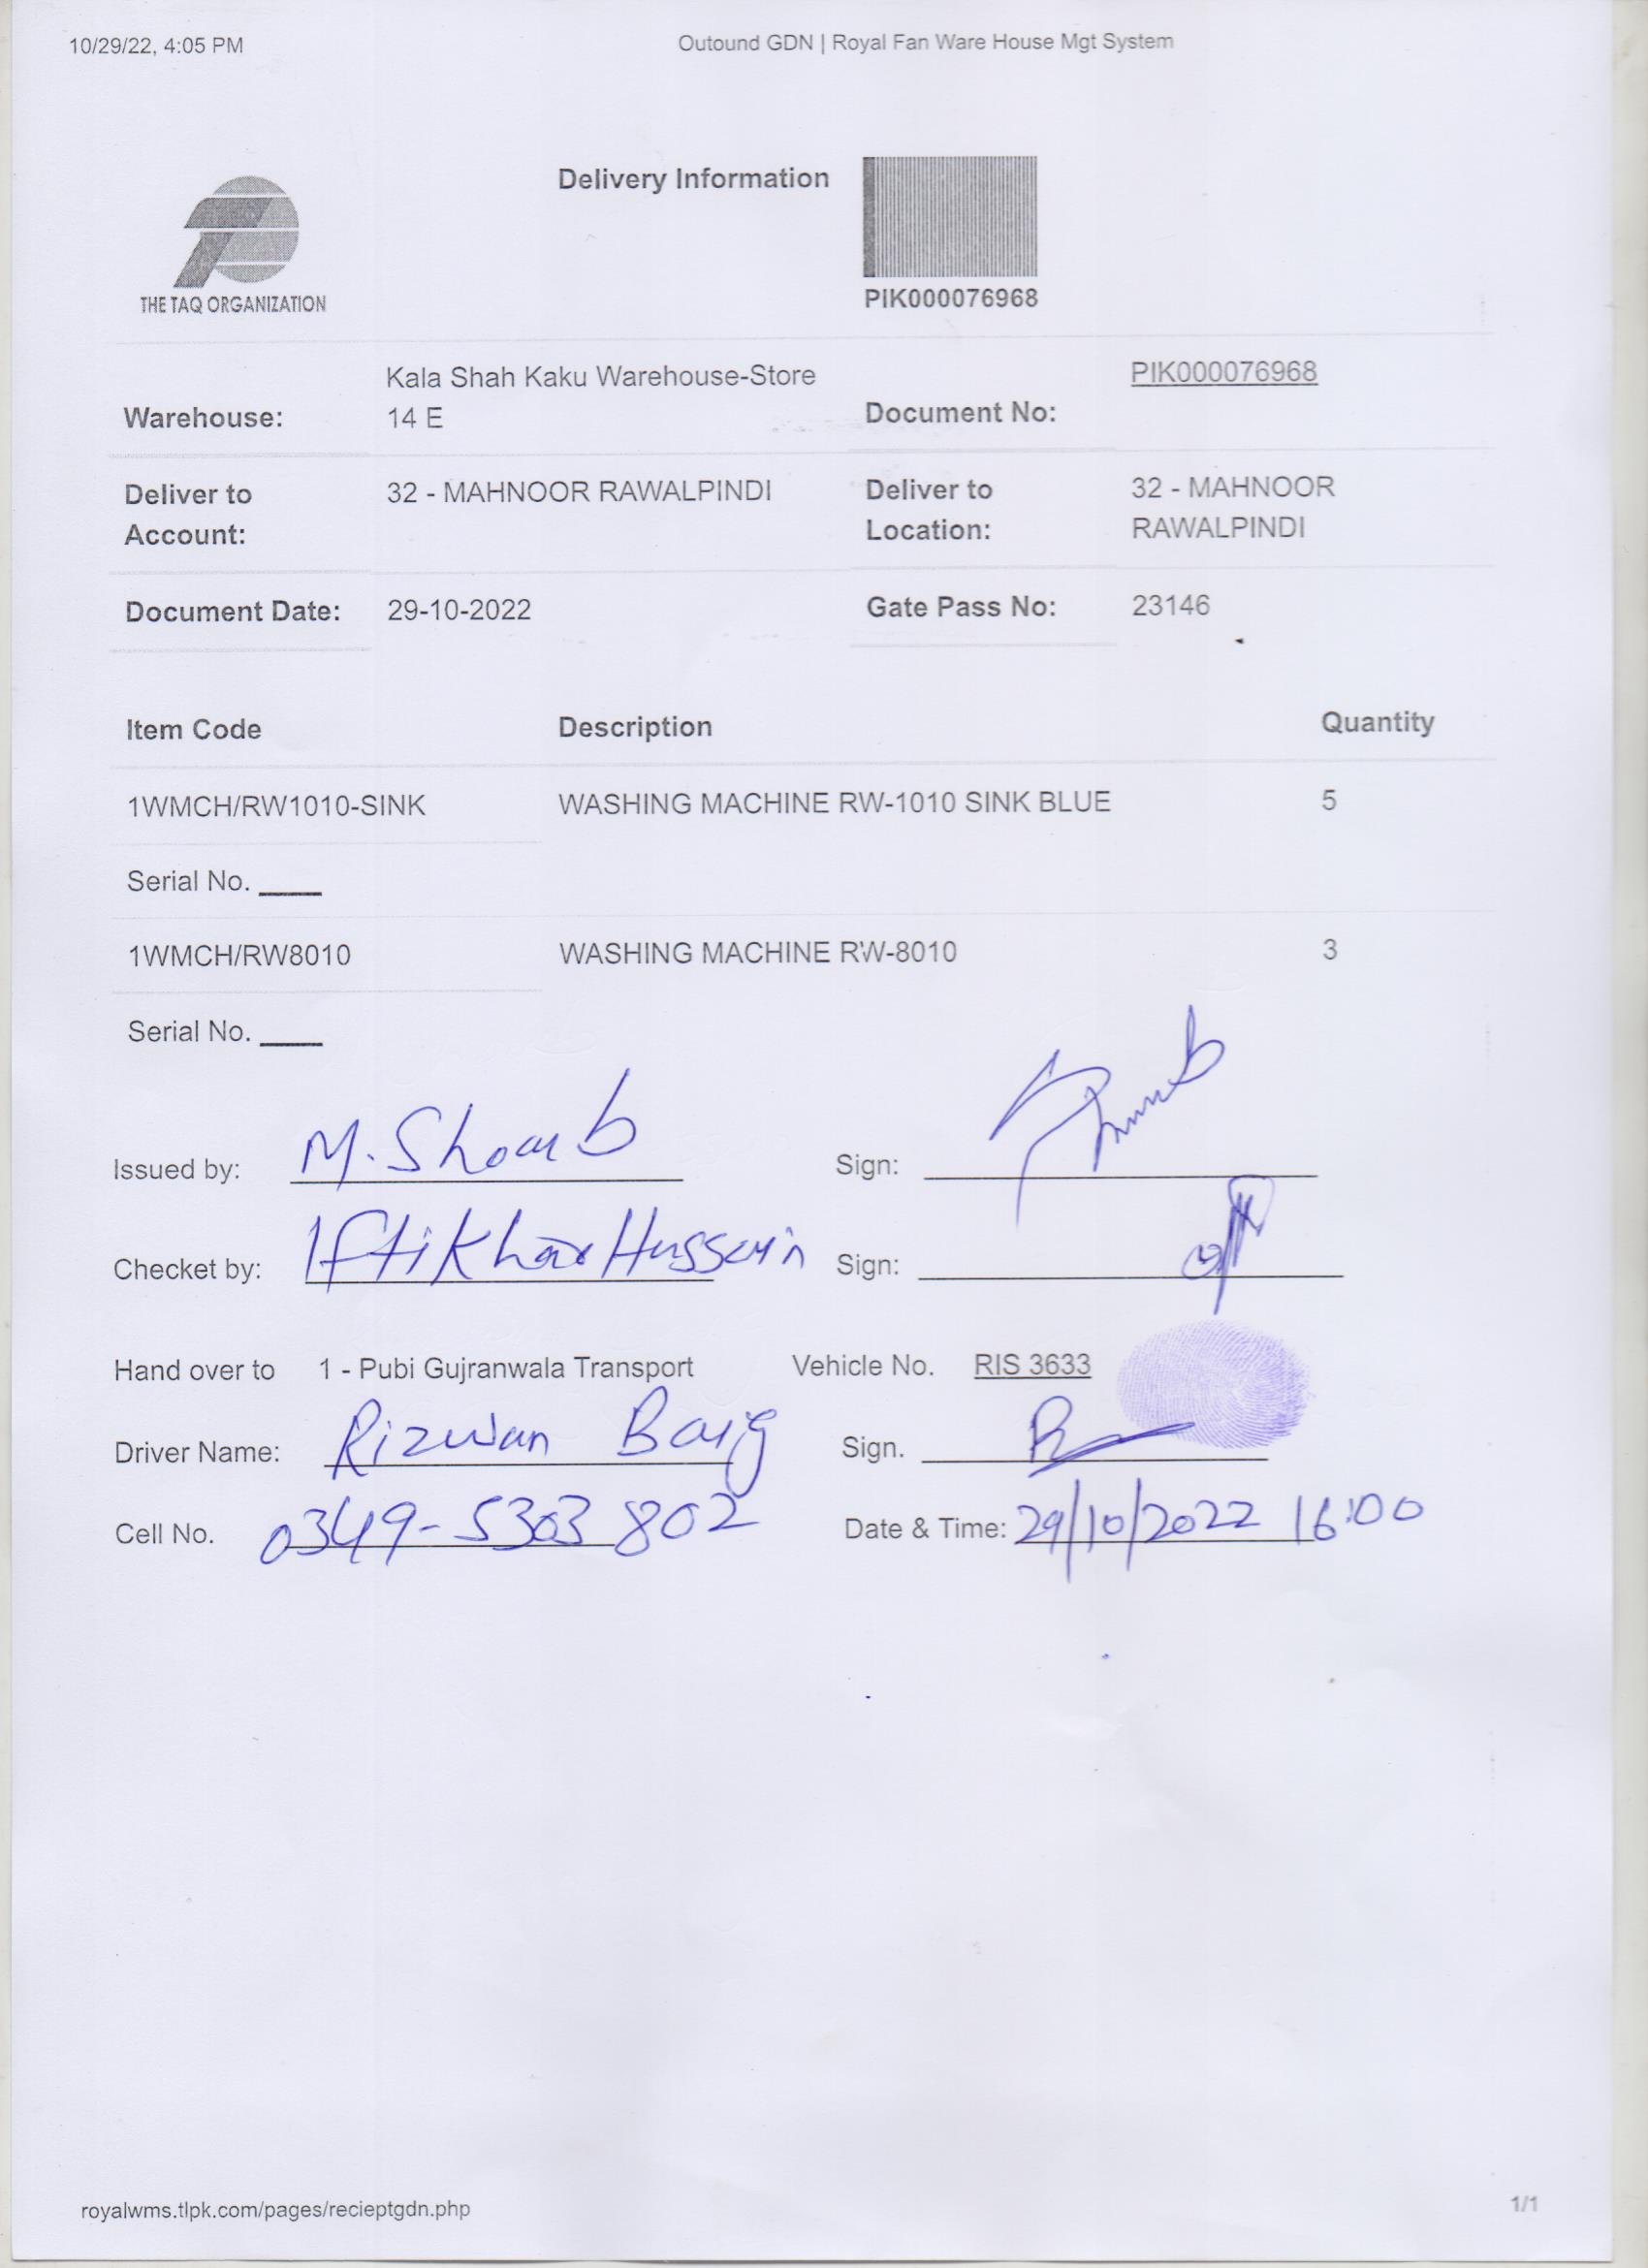 10/29/22, 4:05 PM
Outound GDN | Royal Fan Ware House Mgt System
Delivery Information
THE TAQ ORGANIZATION
PIK000076968
Kala Shah Kaku Warehouse-Store
PIK000076968
Warehouse: 14 E Document No:
Deliver to 32 - MAHNOOR RAWALPINDI Deliver to 32 - MAHNOOR
Account: Location: RAWALPINDI
Document Date: 29-10-2022 Gate Pass No: 23146
Item Code Description Quantity
1WMCH/RW1010-SINK WASHING MACHINE RW-1010 SINK BLUE 5
Serial No.
1WMCH/RW8010 WASHING MACHINE RW-8010 3
Serial No.
Issued by: M. Sign:
Checket by: Iftikhar Hussain Sign:
Hand over to 1 - Pubi Gujranwala Transport Vehicle No. RIS 3633
Driver Name: Rizwan Baig Sign.
Cell No. 0349-5303802 Date & Time: 29/10/2022 16:00
royalwms.tlpk.com/pages/recieptgdn.php
1/1